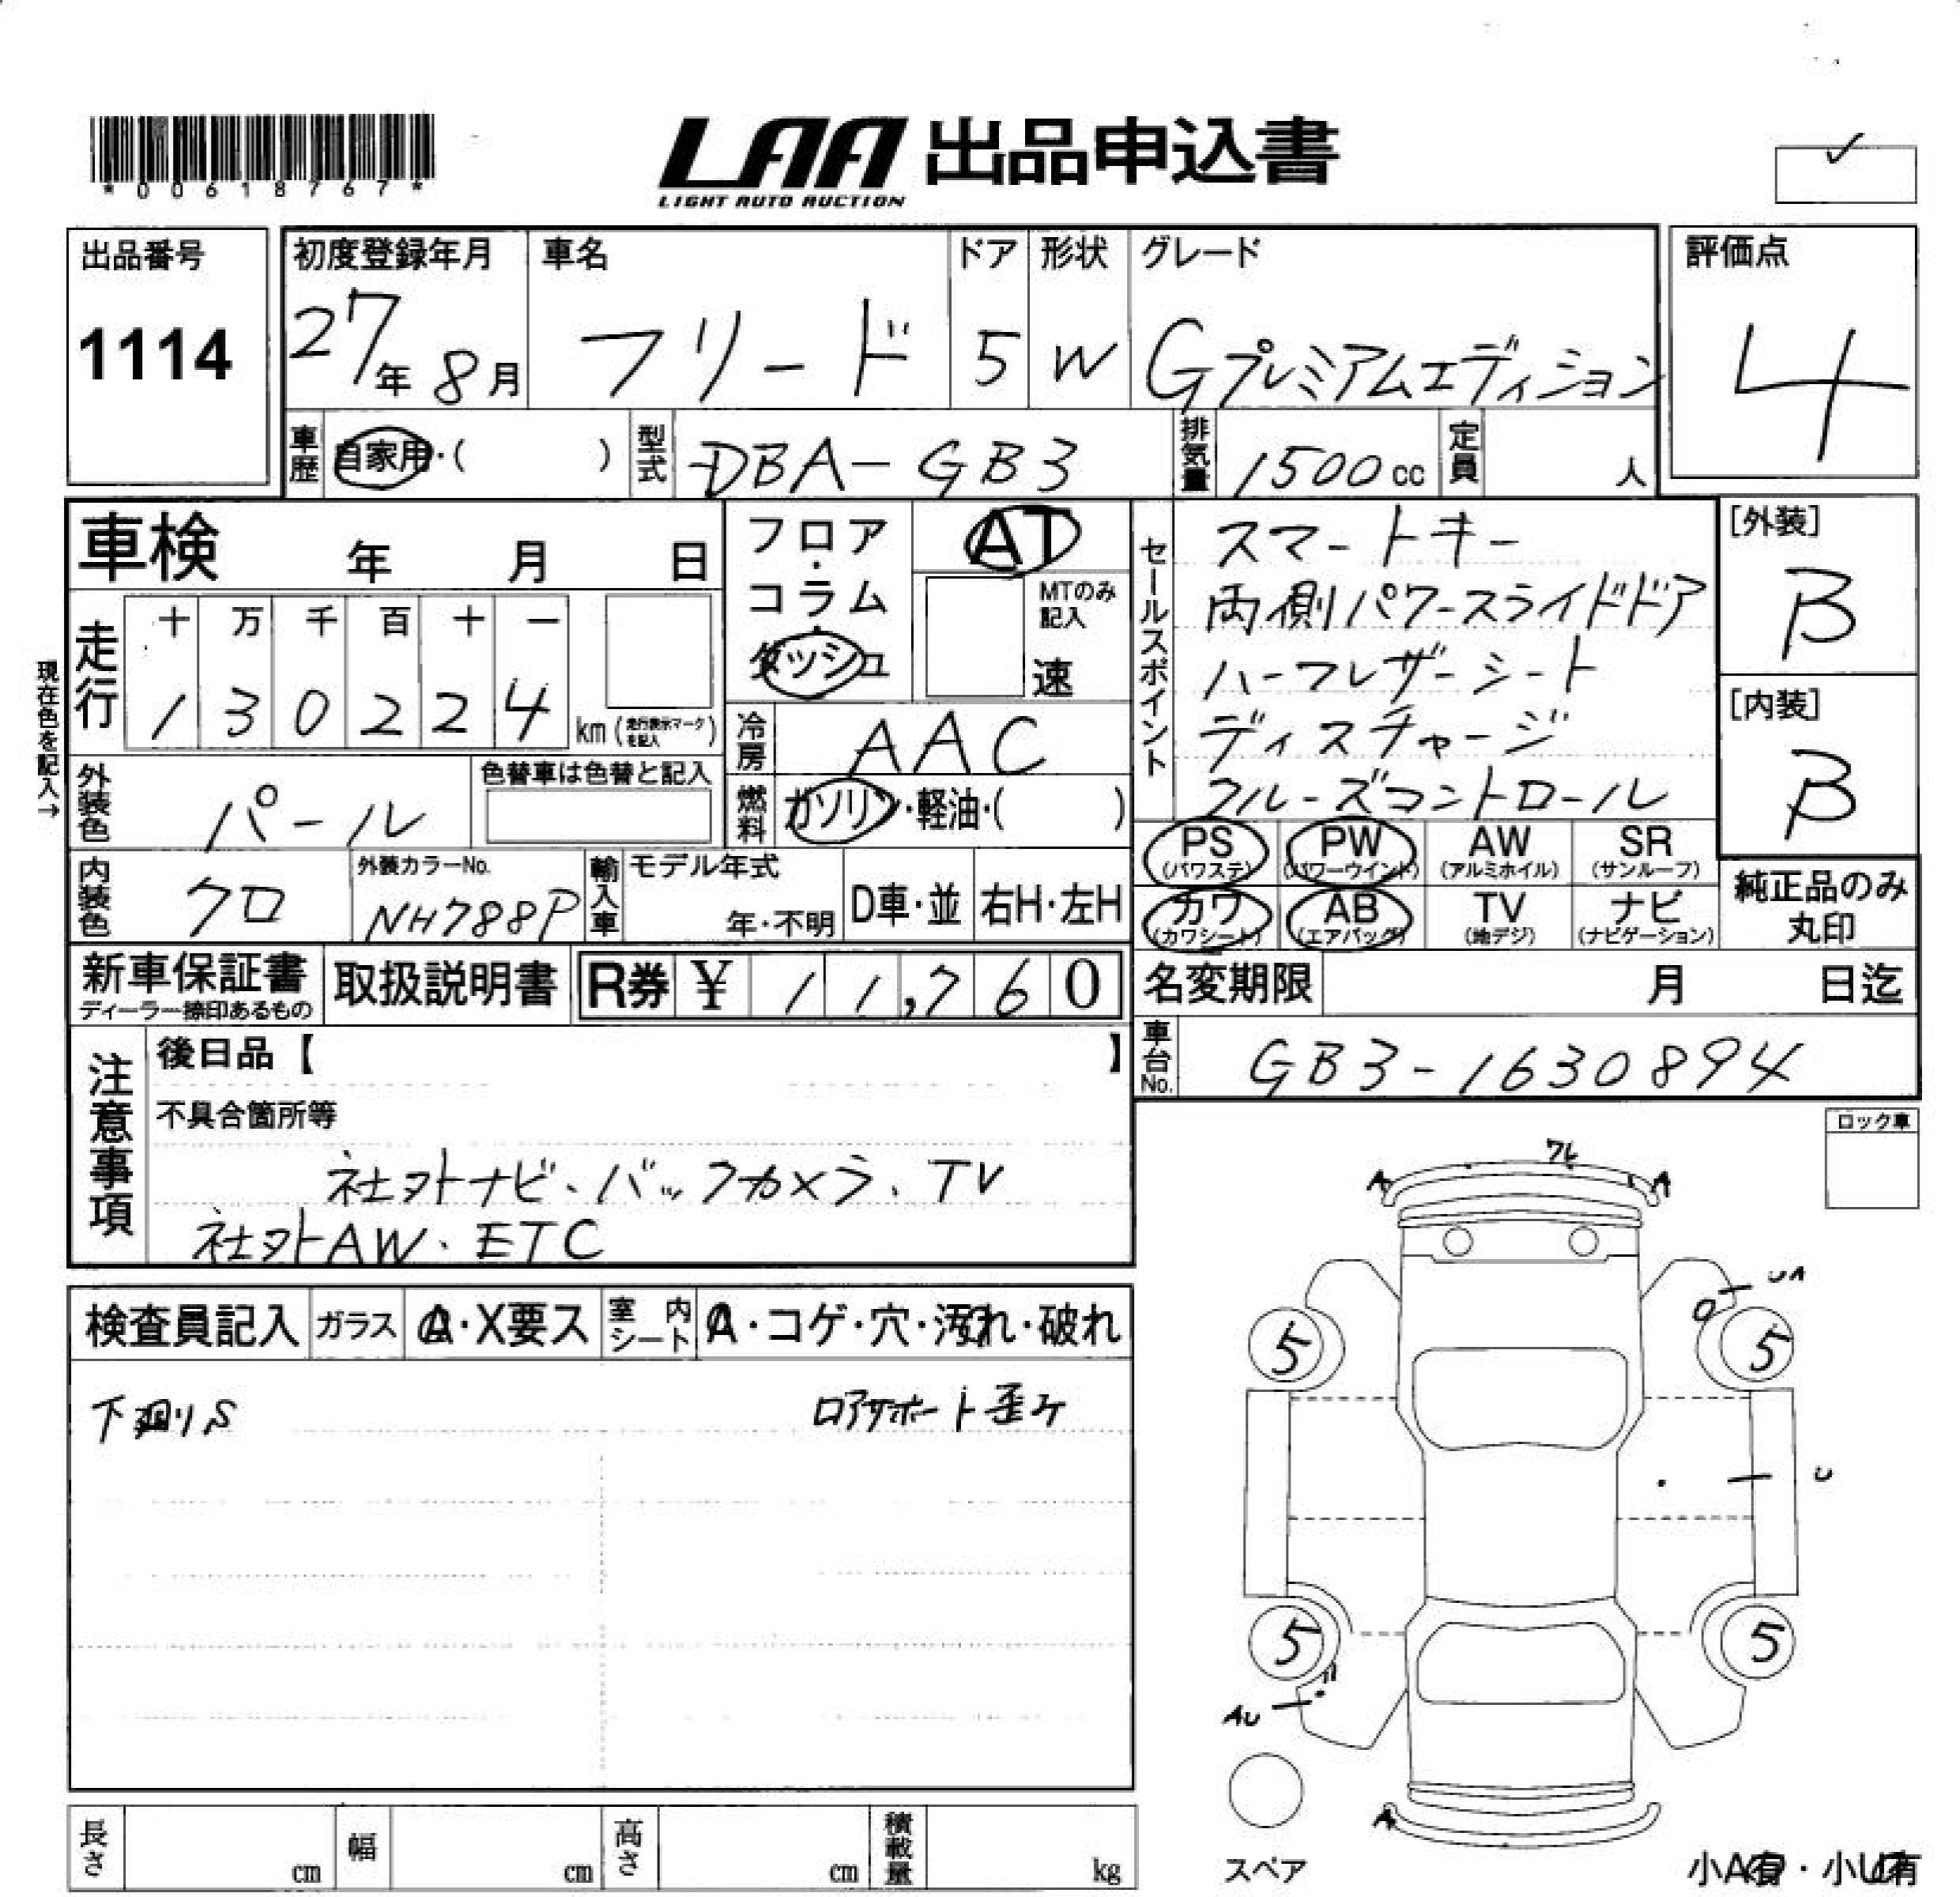 *00618767*
LAA 出品申込書
LIGHT AUTO AUCTION
出品番号
1114
初度登録年月
27年 8月
車名
フリード
ドア
5
形状
W
グレード
Gプレミアムエディション
評価点
4
車歴 自家用・( )
型式 DBA-GB3
排気量 1500 cc
定員 人
車検 年 月 日
フロア・コラム・ダッシュ
AT
MTのみ記入
速
現在色を記入→
走行
十 万 千 百 十 一
1 3 0 2 2 4 km (走行表示マークを記入)
冷房 AAC
燃料 ガソリン・軽油・( )
外装色 パール
色替車は色替と記入
内装色 クロ
外装カラーNo.
NH788P
輸入車
モデル年式
年・不明
D車・並
右H・左H
セールスポイント
スマートキー
両側パワースライドドア
ハーフレザーシート
ディスチャージ
クルーズコントロール
[外装]
B
[内装]
B
PS (パワステ)
PW (パワーウインド)
AW (アルミホイル)
SR (サンルーフ)
カワ (カワシート)
AB (エアバッグ)
TV (地デジ)
ナビ (ナビゲーション)
純正品のみ丸印
新車保証書
ディーラー捺印あるもの
取扱説明書
R券 ¥ 11,760
名変期限 月 日迄
車台No. GB3-1630894
注意事項
後日品【 】
不具合箇所等
社外ナビ、バックカメラ、TV
社外AW、ETC
ロック車
検査員記入
ガラス A・X要ス
室内シート A・コゲ・穴・汚れ・破れ
下廻りS
ロアサポート歪ケ
A
フレ
A
UA
5
5
U
5
5
AU
A
スペア
小A有・小U有
長さ cm
幅 cm
高さ cm
積載量 kg